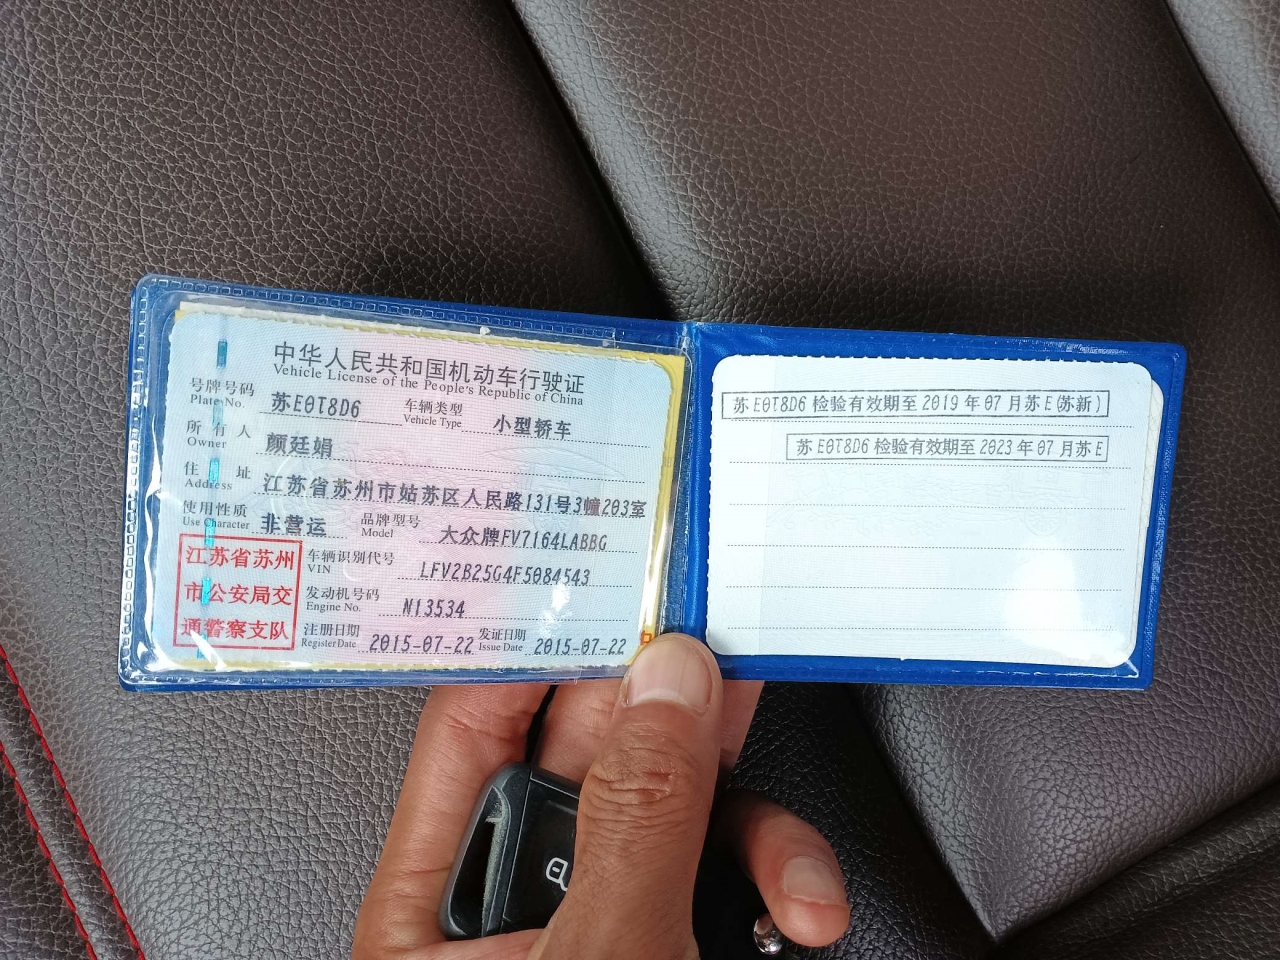 中华人民共和国机动车行驶证
Vehicle License of the People's Republic of China
号牌号码 苏E0T8D6 车辆类型 小型轿车
Plate No. Vehicle Type
所有人 颜廷娟
Owner
住址 江苏省苏州市姑苏区人民路131号3幢203室
Address
使用性质 非营运 品牌型号 大众牌FV7164LABBG
Use Character Model
江苏省苏州
市公安局交
通警察支队
车辆识别代号 LFV2B25G4F5084543
VIN
发动机号码 N13534
Engine No.
注册日期 2015-07-22 发证日期 2015-07-22
Register Date Issue Date
苏E0T8D6 检验有效期至 2019 年 07 月苏E(苏新)
苏E0T8D6 检验有效期至 2023 年 07 月苏E